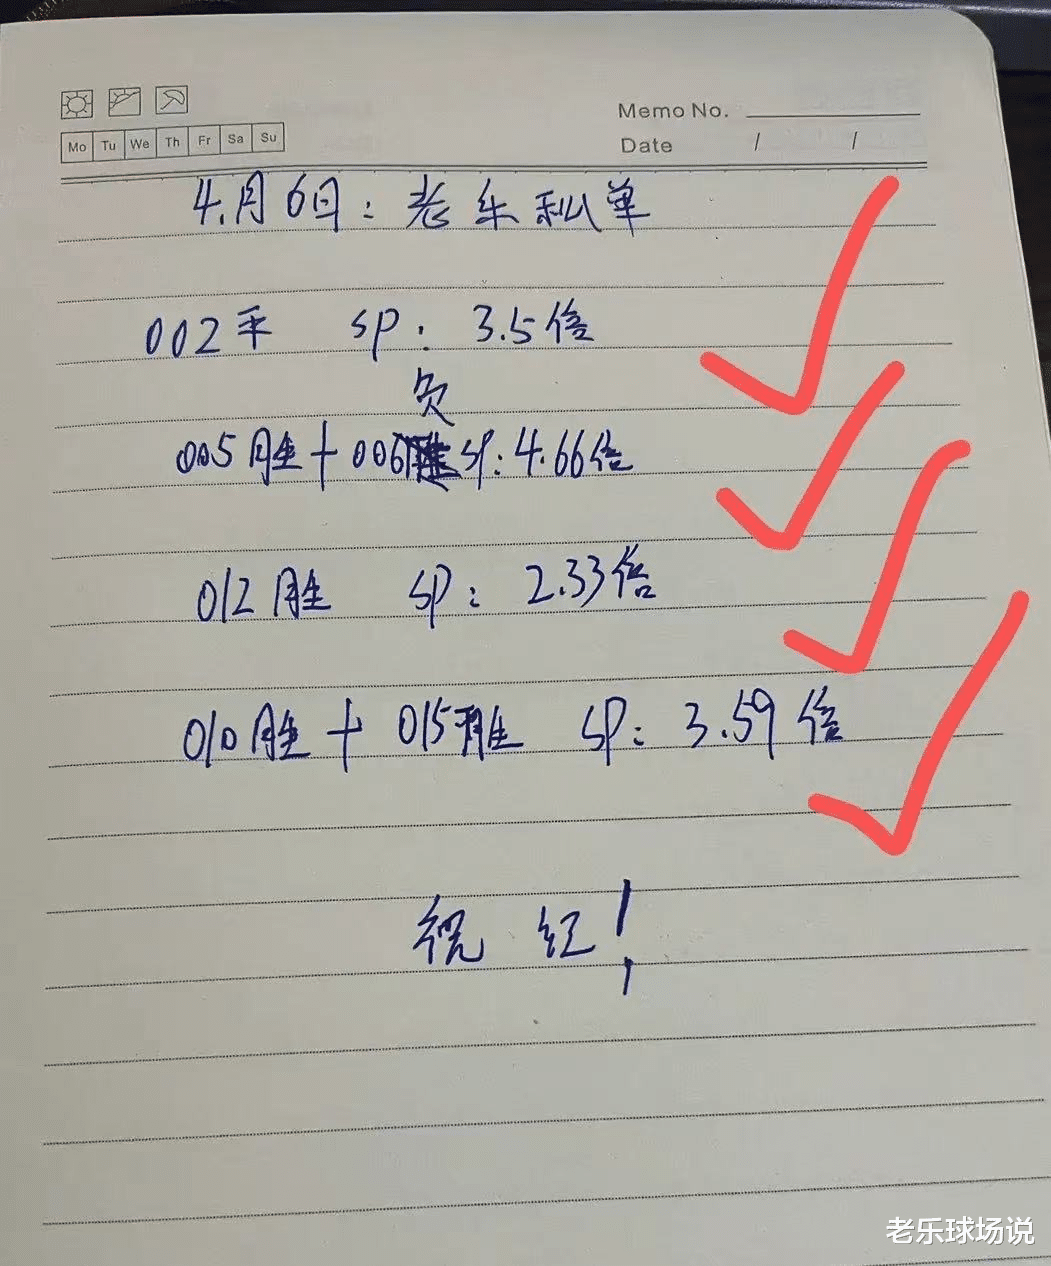 Memo No.
Mo Tu We Th Fr Sa Su
Date / /
4.月6日：老乐私单
002平 SP: 3.5倍
负
005胜+006 SP:4.66倍
012胜 SP: 2.33倍
010胜+015胜 SP: 3.59倍
祝红!
老乐球场说